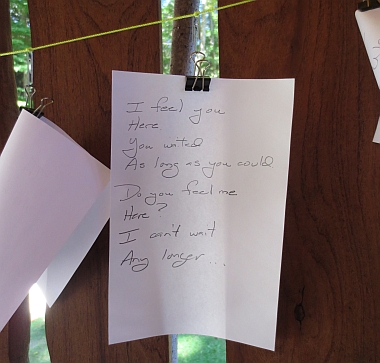 I feel you
Here.
You waited
As long as you could.
Do you feel me
Here?
I can't wait
Any longer...